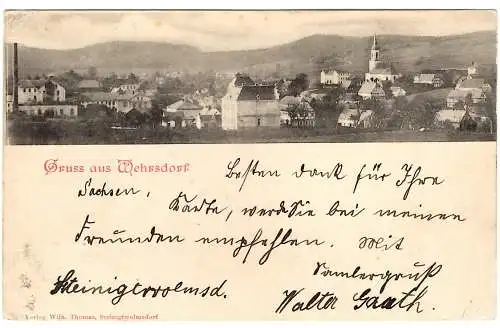 Gruss aus Wehrsdorf
Sachsen,
Besten dank für Ihre
Karte, werde Sie bei meinen
Freunden empfehlen. Mit
Samlergruß
Steinigerwolmsd.
Walter Gnath.
Verlag Wilh. Thomas, Steinigtwolmsdorf